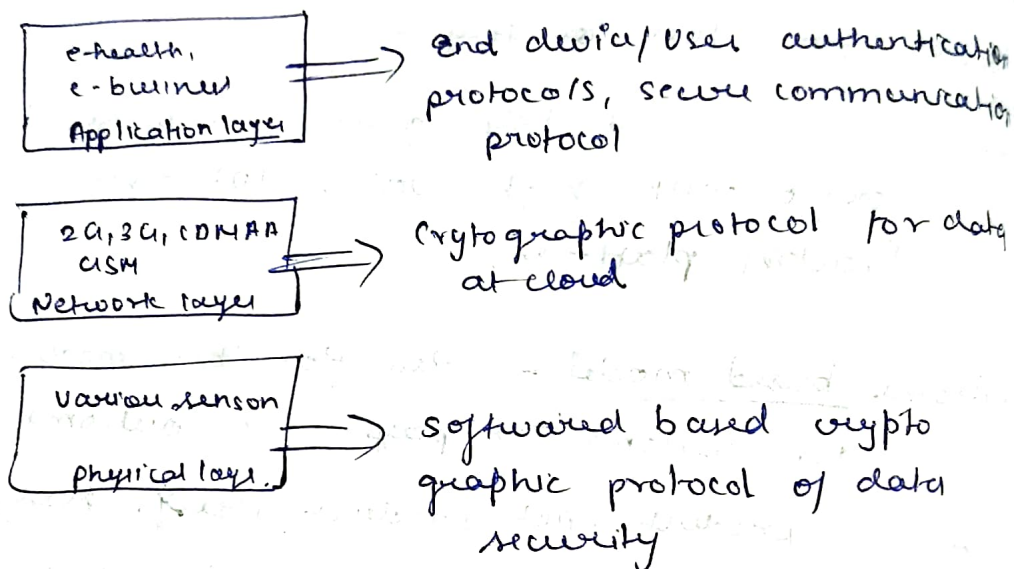 e-health,
e-business
Application layer
End device/User authentication
protocols, secure communication
protocol
2G, 3G, CDMAA
GSM
Network layer
Crytographic protocol for data
at cloud
Various sensor
physical laye.
softwared based crypto
graphic protocol of data
security